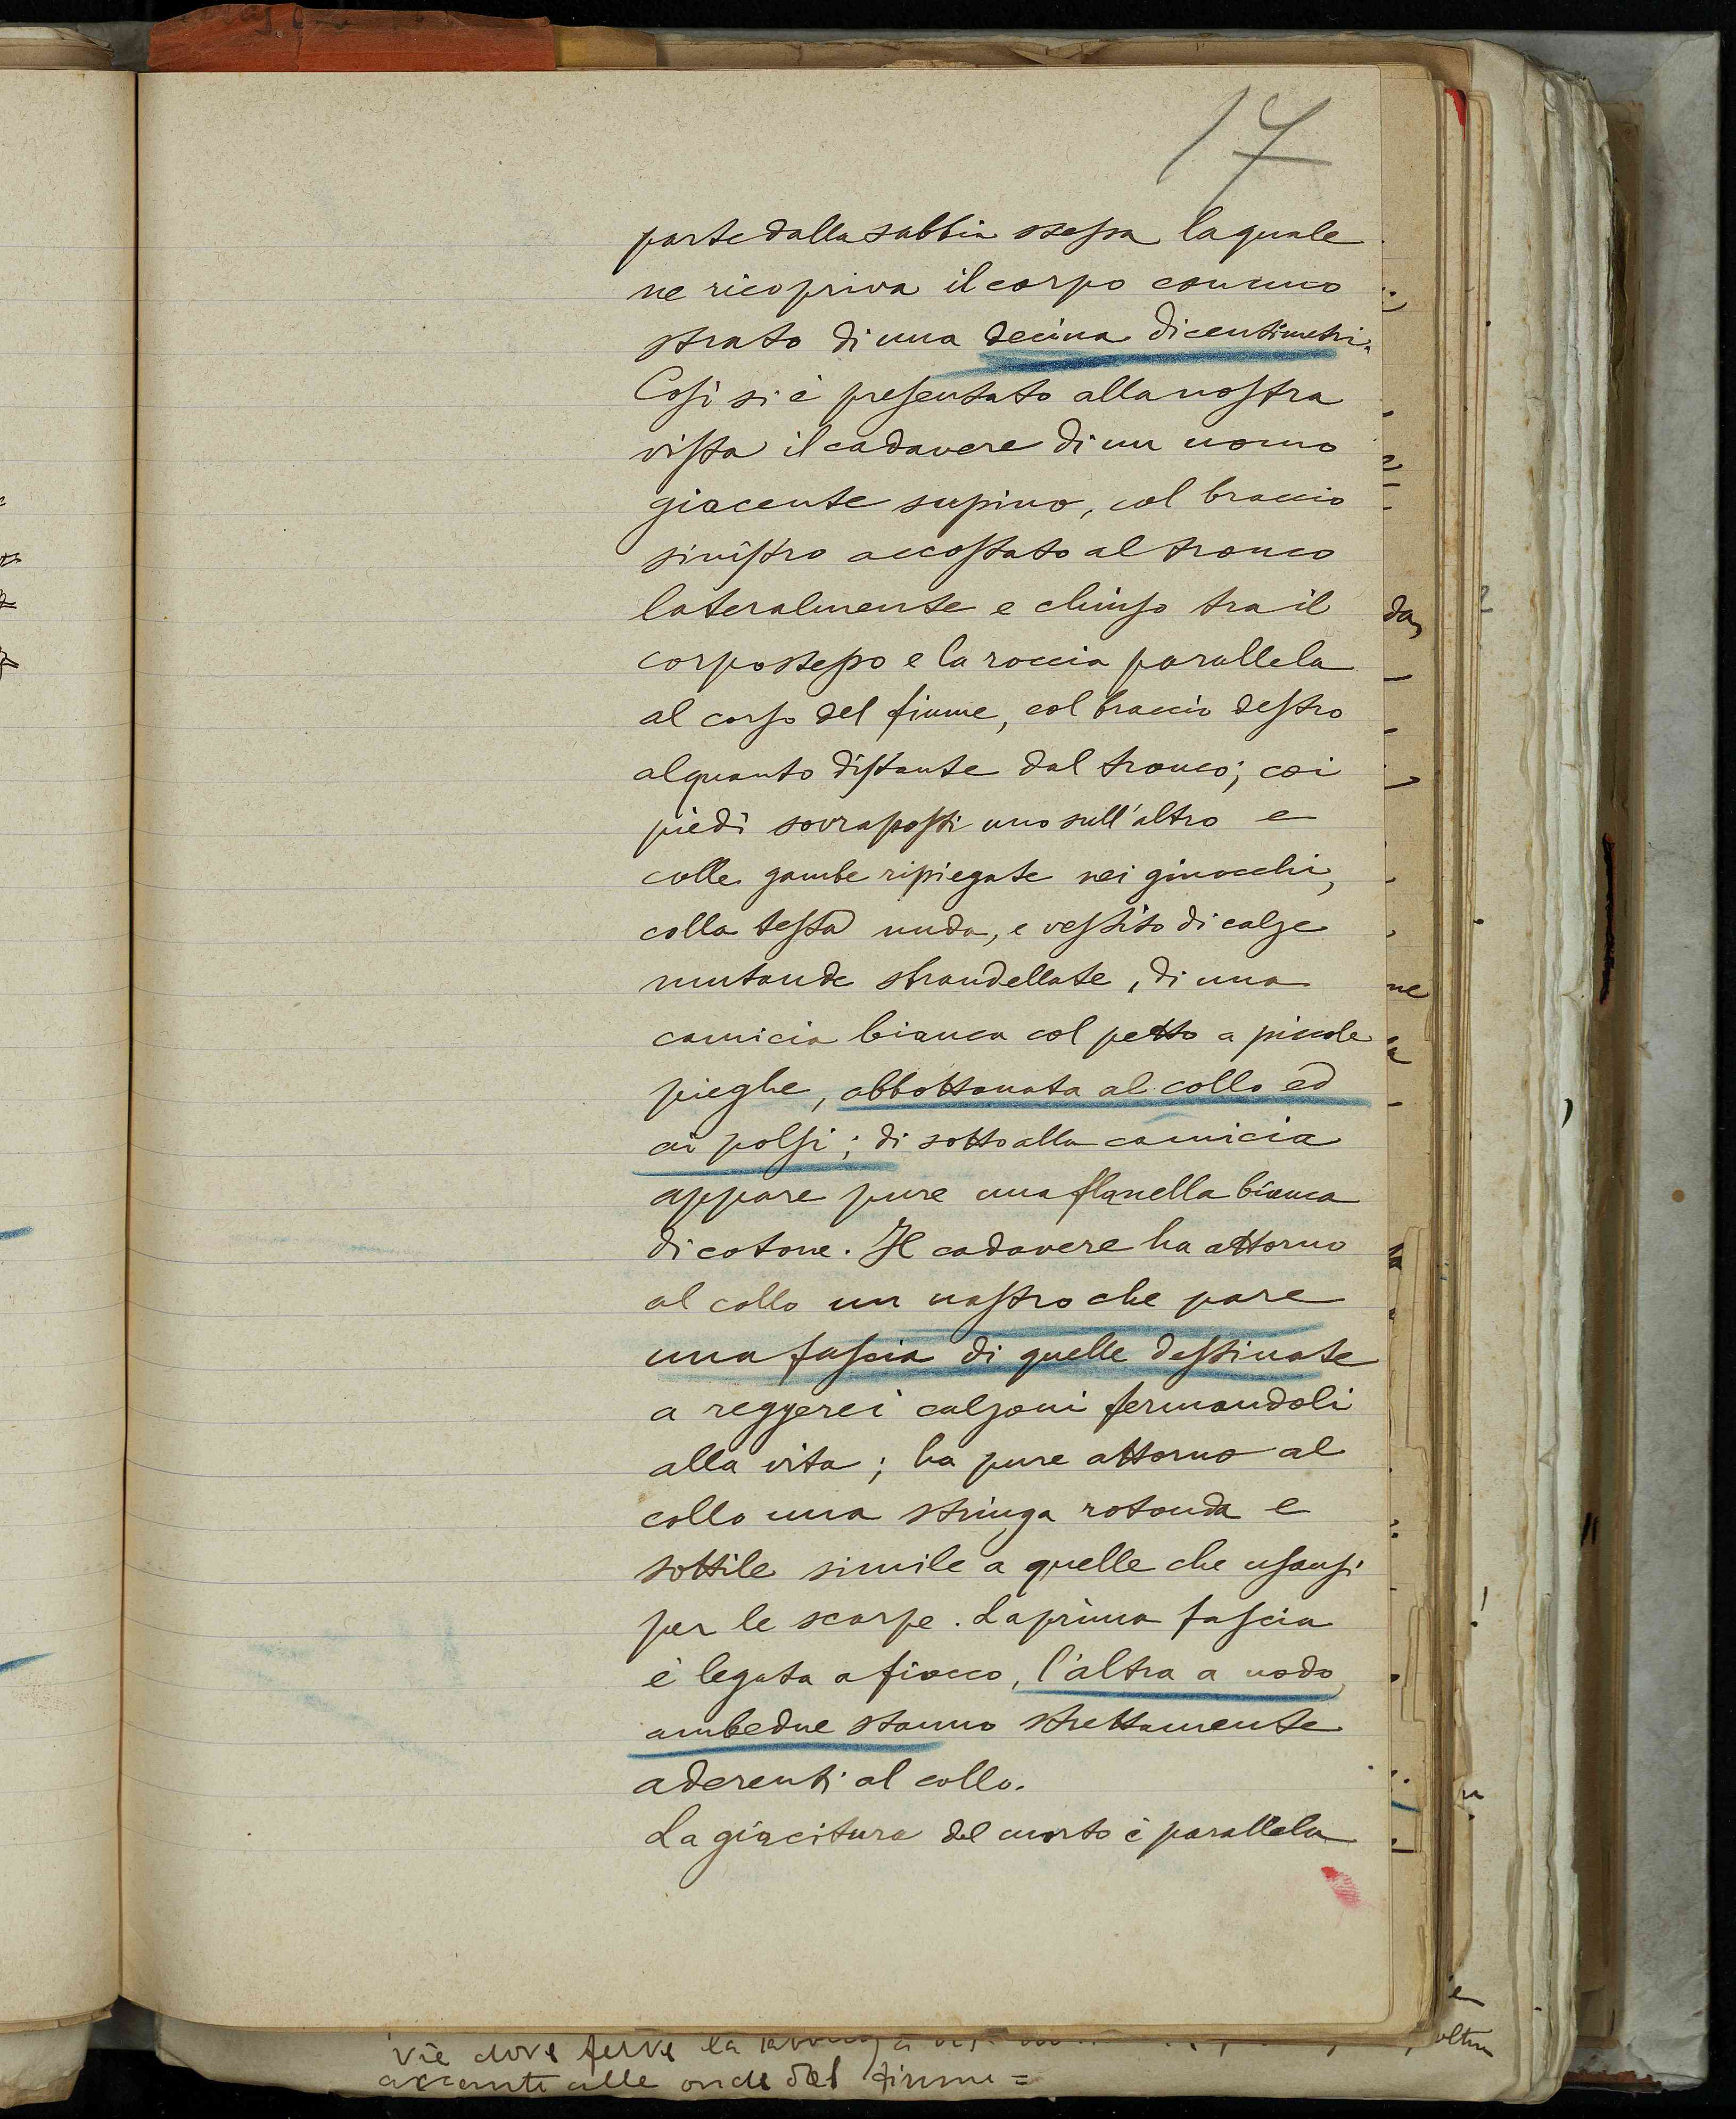 17
parte dalla sabbia stessa la quale
ne ricopriva il corpo con uno
strato di una decina di centimetri.
Così si è presentato alla nostra
vista il cadavere di un uomo
giacente supino, col braccio
sinistro accostato al tronco
lateralmente e chiuso tra il
corpo stesso e la roccia parallela
al corso del fiume, col braccio destro
alquanto distante dal tronco; coi
piedi sovraposti uno sull'altro e
colle gambe ripiegate nei ginocchi,
colla testa nuda, e vestito di calze
mutande sbrandellate, di una
camicia bianca col petto a piccole
pieghe, abbottonata al collo ed
ai polsi; di sotto alla camicia
appare pure una flanella bianca
di cotone. Il cadavere ha attorno
al collo un nastro che pare
una fascia di quelle destinate
a reggere i calzoni fermandoli
alla vita; ha pure attorno al
collo una stringa rotonda e
sottile simile a quelle che usansi
per le scarpe. La prima fascia
è legata a fiocco, l'altra a nodo,
ambedue stanno strettamente
aderenti al collo.
La giacitura del morto è parallela
da
ne
vie dove la
alle onde del fiume =